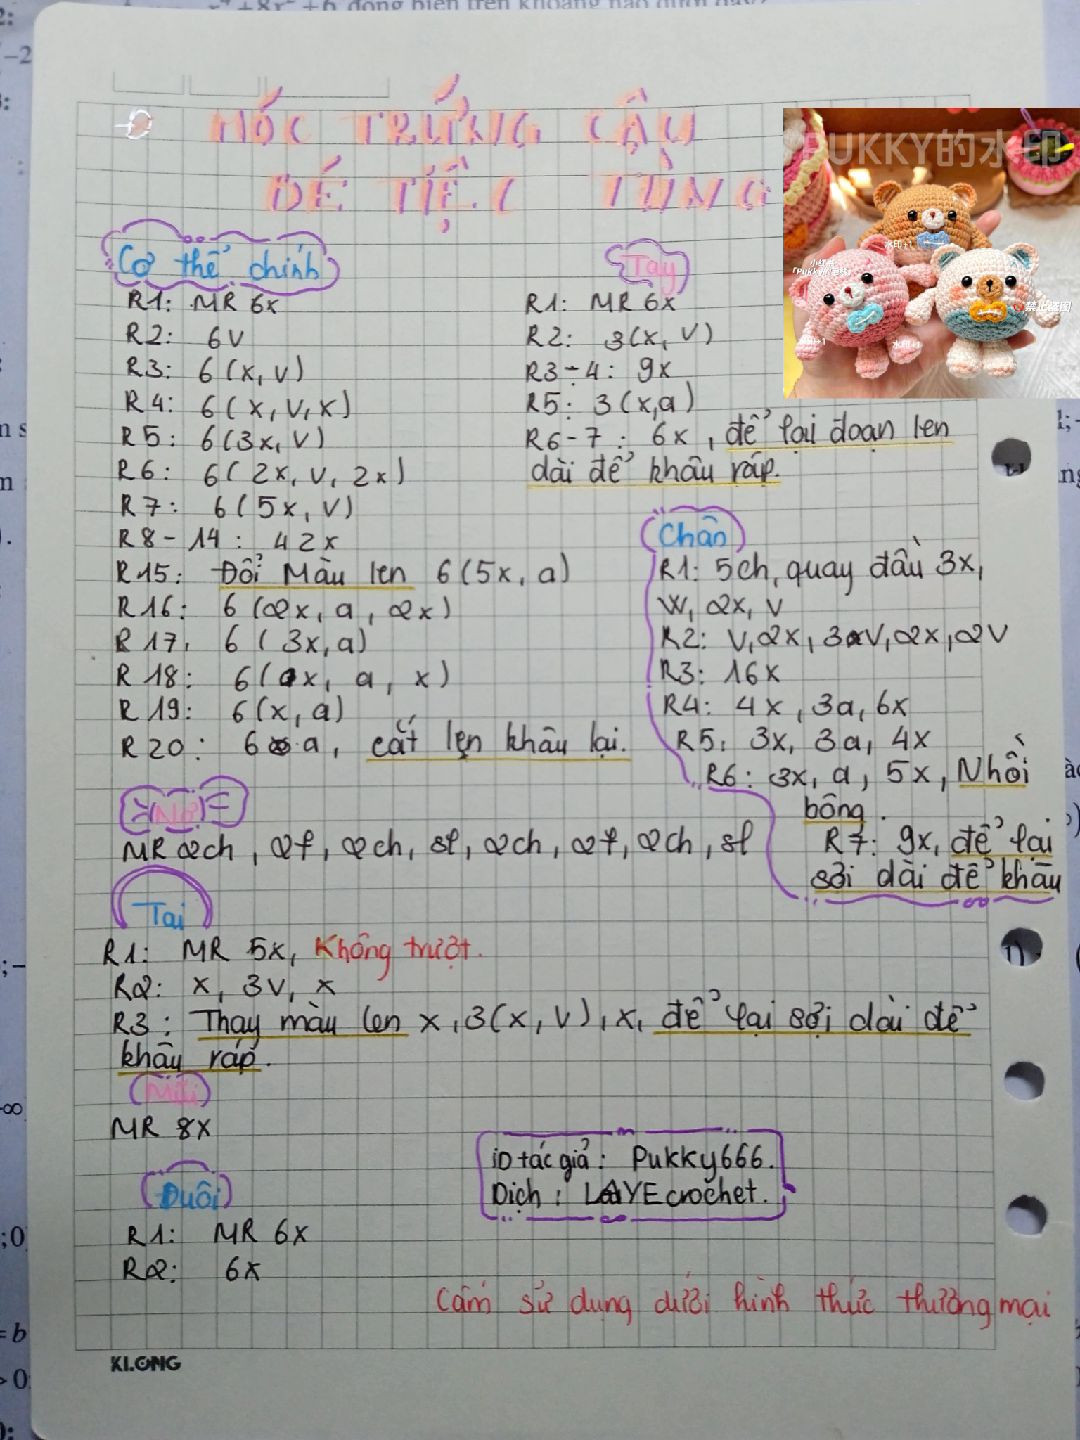 MÓC TRỨNG CẬU
BÉ TIỆC TÙNG
Cơ thể chính
R1: MR 6x
R2: 6V
R3: 6(x, v)
R4: 6(x, v, x)
R5: 6(3x, v)
R6: 6(2x, v, 2x)
R7: 6(5x, v)
R8-14: 42x
R15: Đổi Màu len 6(5x, a)
R16: 6(2x, a, 2x)
R17: 6(3x, a)
R18: 6(x, a, x)
R19: 6(x, a)
R20: 6 a, cắt len khâu lại.
Nơ
MR 2ch, 2f, 2ch, sl, 2ch, 2f, 2ch, sl
Tai
R1: MR 5x, Không trượt.
R2: x, 3v, x
R3: Thay màu len x, 3(x, v), x, để lại sợi dài để
khâu ráp.
MR 8x
Đuôi
R1: MR 6x
R2: 6x
Tay
R1: MR 6x
R2: 3(x, v)
R3-4: 9x
R5: 3(x,a)
R6-7: 6x, để lại đoạn len
dài để khâu ráp.
Chân
R1: 5ch, quay đầu 3x,
W, 2x, v
R2: V, 2x, 3V, 2x, 2V
R3: 16x
R4: 4x, 3a, 6x
R5: 3x, 3a, 4x
R6: 3x, a, 5x, Nhồi
bông.
R7: 9x, để lại
sợi dài để khâu
ID tác giả: Pukky666.
Dịch: LAYEcrochet.
Cấm sử dụng dưới hình thức thương mại
KLONG
PUKKY的水印